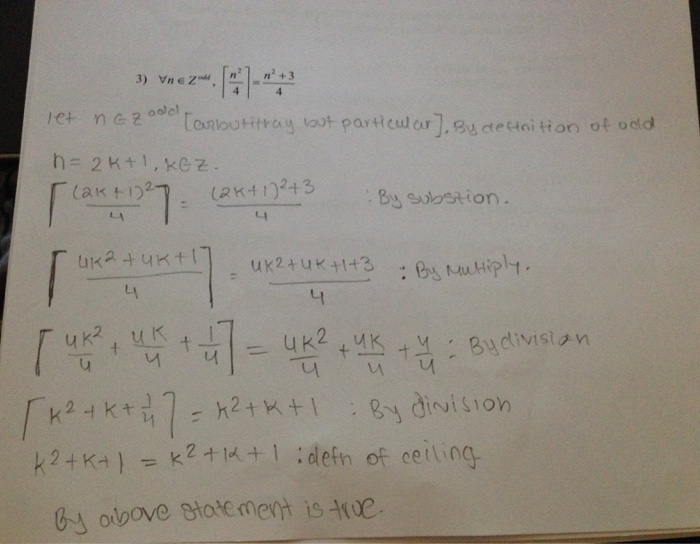 3) ∀n ∈ Z^odd, ⌈n²/4⌉ = n²+3/4
let n ∈ Z^odd [arbutitray but particular], By definition of odd
n = 2k+1, k∈Z.
⌈(2k+1)²/4⌉ = (2k+1)²+3/4 : By substion.
⌈4k²+4k+1/4⌉ = 4k²+4k+1+3/4 : By Multiply.
⌈4k²/4 + 4k/4 + 1/4⌉ = 4k²/4 + 4k/4 + 4/4 : By division
⌈k²+k+1/4⌉ = k²+k+1 : By division
k²+k+1 = k²+k+1 : defn of ceiling
By above statement is true.